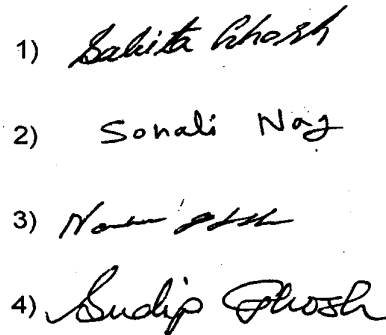 1) Sabita Ghosh
2) Sonali Nag
3)
4) Sudip Ghosh